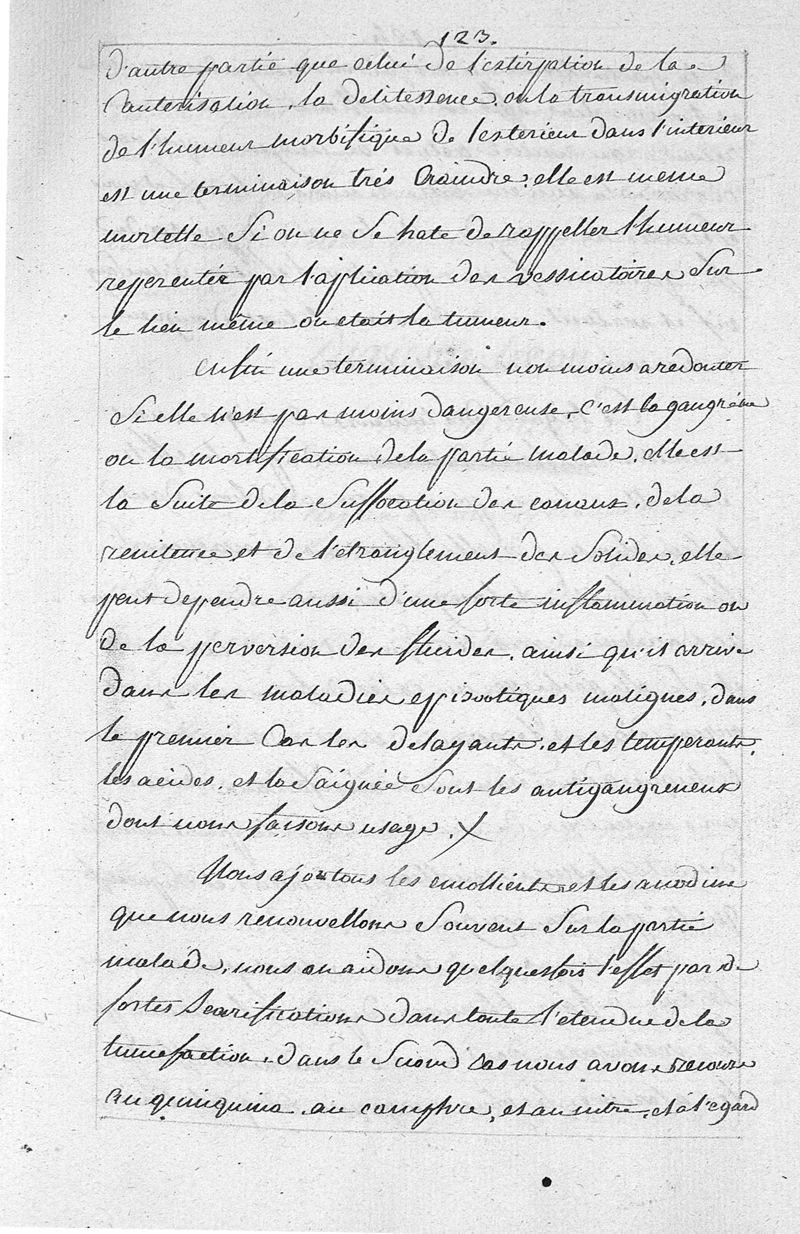 123.
d'autre partie que celui de l'estirpation de la
Cauterisation, la delitessence, ou la transmigration
de l'humeur morbifique de l'exterieur dans l'interieur
est une terminaison trés Craindre, elle est meme
mortelle Si on ne Se hate de rappeller l'humeur
repercutée par l'aplication des vessicatoires Sur
le lieu même ou etait la tumeur.
Enfin une terminaison non moins a redouter
Si elle n'est pas moins dangereuse, C'est la gangréne
ou la mortification de la partie malade, elle est
la Suite de la Suffocation des canaux, de la
renitence et de l'etranglement des Solides, elle
peut dependre aussi d'une forte inflammation ou
de la perversion des fluides, ainsi qu'il arrive
dans les maladies epizootiques malignes, dans
le premier Cas les delayants, et les temperants,
les acides, et la Saignée Sont les antigangreneux
dont nous faisons usage. X
Nous ajoutons les emollients et les anodins
que nous renouvellons Souvent Sur la partie
malade, nous en aidons quelquefois l'effet par de
fortes Scarifications dans toute l'etendue de la
tumefaction, dans le Second Cas nous avons recours
au quinquina, au camphre, et au nitre, et a l'egard